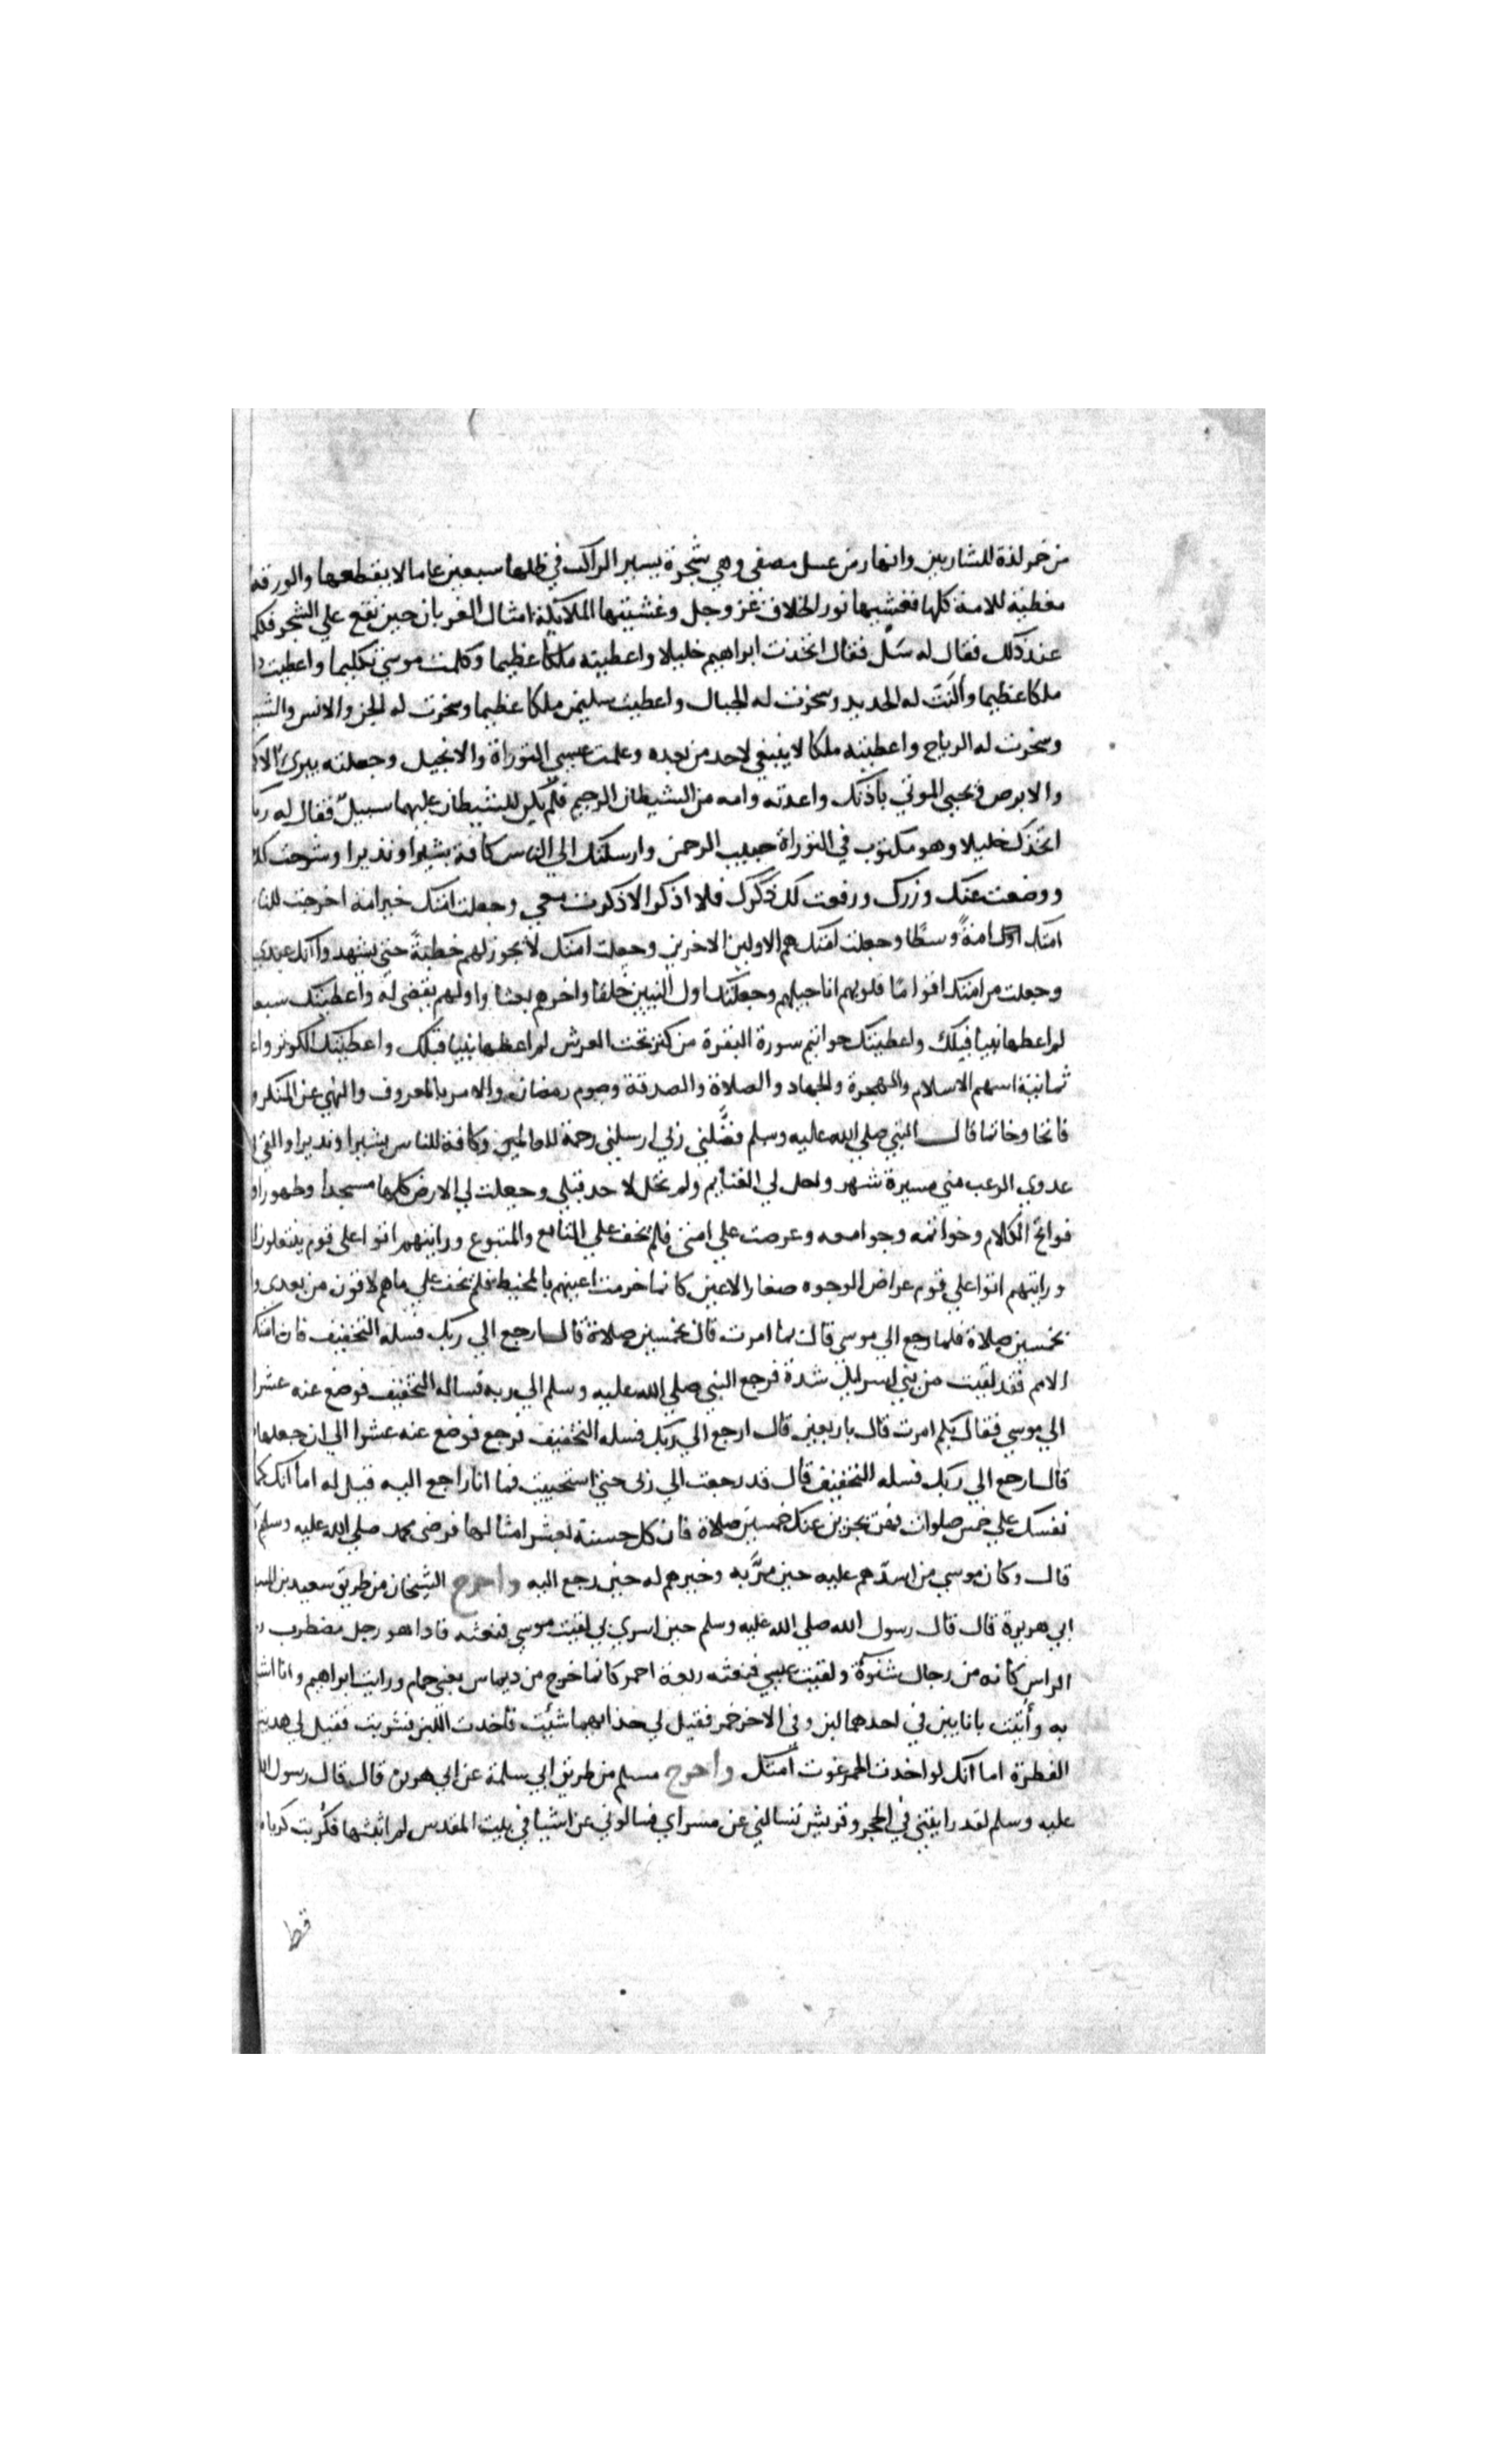 من خمر لذة للشاربين وانهار من عسل مصفى وهي شجرة يسير الراكب في ظلها سبعين عاما لا يقطعها والورقة
مغطية للامة كلها فغشيها نور الخلاق عز وجل وغشيتها الملائكة امثال الغربان حين تقع علي الشجر فكلم
عند ذلك فقال له سَل فقال اتخذت ابراهيم خليلا واعطيته ملكا عظيما وكلمت موسي تكليما واعطيت د
ملكا عظيما وأَلَنْتَ له الحديد وسخرت له الجبال واعطيت سليمن ملكا عظيما وسخرت له الجن والانس والشي
وسخرت له الرياح واعطيته ملكا لا ينبغي لاحد من بعده وعلمت عيسي التوراة والانجيل وجعلته يبرئ الاك
والابرص ويحيي الموتي باذنك واعذته وامه من الشيطان الرجيم فلم يكن للشيطان عليهما سبيل فقال له ربه
اتخذك خليلا وهو مكتوب في التوراة حبيب الرحمن وارسلتك الي الناس كافة بشيرا ونذيرا وشرحت لك
ووضعت عنك وزرك ورفعت لك ذكرك فلا اذكر الا ذكرت معي وجعلت امتك خير امة اخرجت للنا
امتك امةً وسطًا وجعلت امتك هم الاولين الاخرين وجعلت امتك لا يجوز لهم خطبةً حتي يشهدوا انك عبدي
وجعلت من امتك اقوامًا قلوبهم اناجيلهم وجعلتك اول النبيين خلقا واخرهم بعثا واولهم يقضى له واعطيتك سبعا
لم اعطها نبيا قبلك واعطيتك خواتيم سورة البقرة من كنز تحت العرش لم اعطها نبيا قبلك واعطيتك الكوثر واع
ثمانية اسهم الاسلام والهجرة والجهاد والصلاة والصدقة وصوم رمضان والامر بالمعروف والنهي عن المنكر و
فاتحا وخاتما قال النبي صلي الله عليه وسلم فضَّلني ربي ارسلني رحمة للعالمين وكافة للناس بشيرا ونذيرا والقي
عدوي الرعب مني مسيرة شهر واحل لي الغنايم ولم تحل لاحد قبلي وجعلت لي الارض كلها مسجدا وطهورا و
فواتح الكلام وخواتمه وجوامعه وعرضت علي امتي فلم يخف علي التابع والمتبوع ورايتهم اتوا علي قوم ينتعلون ا
ورايتهم اتوا علي قوم عراض الوجوه صغار الاعين كانما خرمت اعينهم بالمخيط فلم يخف علي ما هم لاقون من بعدي وا
بخمسين صلاة فلما رجع الي موسي قال بما امرت قال بخمسين صلاة قال ارجع الي ربك فسله التخفيف فان امتك
الامم فقد لقيت من بني اسرايل شدة فرجع النبي صلي الله عليه وسلم الي ربه فساله التخفيف فوضع عنه عشرا
الي موسي فقال بكم امرت قال باربعين قال ارجع الي ربك فسله التخفيف فرجع فوضع عنه عشرا الي ان جعلها
قال ارجع الي ربك فسله التخفيف قال قد رجعت الي ربي حتي استحييت فما انا راجع اليه قيل له اما انك كما
نفسك علي خمس صلوات فهن يجزين عنك خمسين صلاة فان كل حسنة بعشر امثالها فرضي محمد صلي الله عليه وسلم
قال وكان موسي من اشدهم عليه حين مرَّ به وخيرهم له حين رجع اليه واخرج الشيخان من طريق سعيد بن المس
ابي هريرة قال قال رسول الله صلي الله عليه وسلم حين اسري بي لقيت موسي فنعته فاذا هو رجل مضطرب ر
الراس كانه من رجال شنوءة ولقيت عيسي فنعته ربعة احمر كانما خرج من ديماس يعني حمام ورايت ابراهيم وانا اشب
به وأُتيت بانايين في احدهما لبن وفي الاخر خمر فقيل لي خذ ايهما شئت فاخذت اللبن فشربت فقيل لي هديت
الفطرة اما انك لو اخذت الخمر غوت امتك واخرج مسلم من طريق ابي سلمة عن ابي هريرة قال قال رسول الل
عليه وسلم لقد رايتني في الحجر وقريش تسالني عن مسراي فسالوني عن اشيا في بيت المقدس لم اثبتها فكُربت كربا م
قط